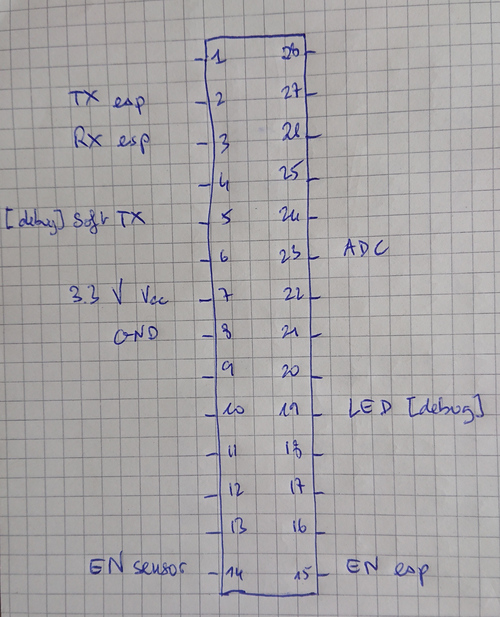 1 28
TX esp 2 27
RX esp 3 26
4 25
[debug] Soft TX 5 24
6 23 ADC
3.3 V Vcc 7 22
GND 8 21
9 20
10 19 LED [debug]
11 18
12 17
13 16
EN sensor 14 15 EN esp